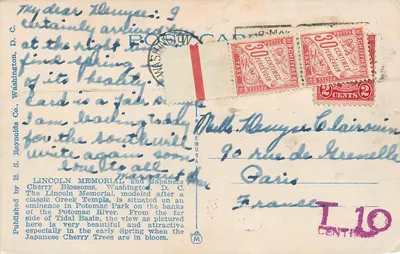 My dear Denyse: I
certainly arrived
at the right
time spring
of its beauty
card is a fair
I am leaving today
for the south will
write again soon
love to all
POST CARD
WASHINGTON
30
30
CENTIMES
CENTIMES
2 CENTS 2
Mlle Denyse Clairouin
90 rue de Grenelle
Paris
France
T 10
CENTIMES
LINCOLN MEMORIAL and Japanese
Cherry Blossoms, Washington, D. C.
The Lincoln Memorial, modeled after a
classic Greek Temple, is situated on an
eminence in Potomac Park on the banks
of the Potomac River. From the far
side of Tidal Basin, the view as pictured
here is very beautiful and attractive
especially in the early Spring when the
Japanese Cherry Trees are in bloom.
Published by B. S. Reynolds Co., Washington, D. C.